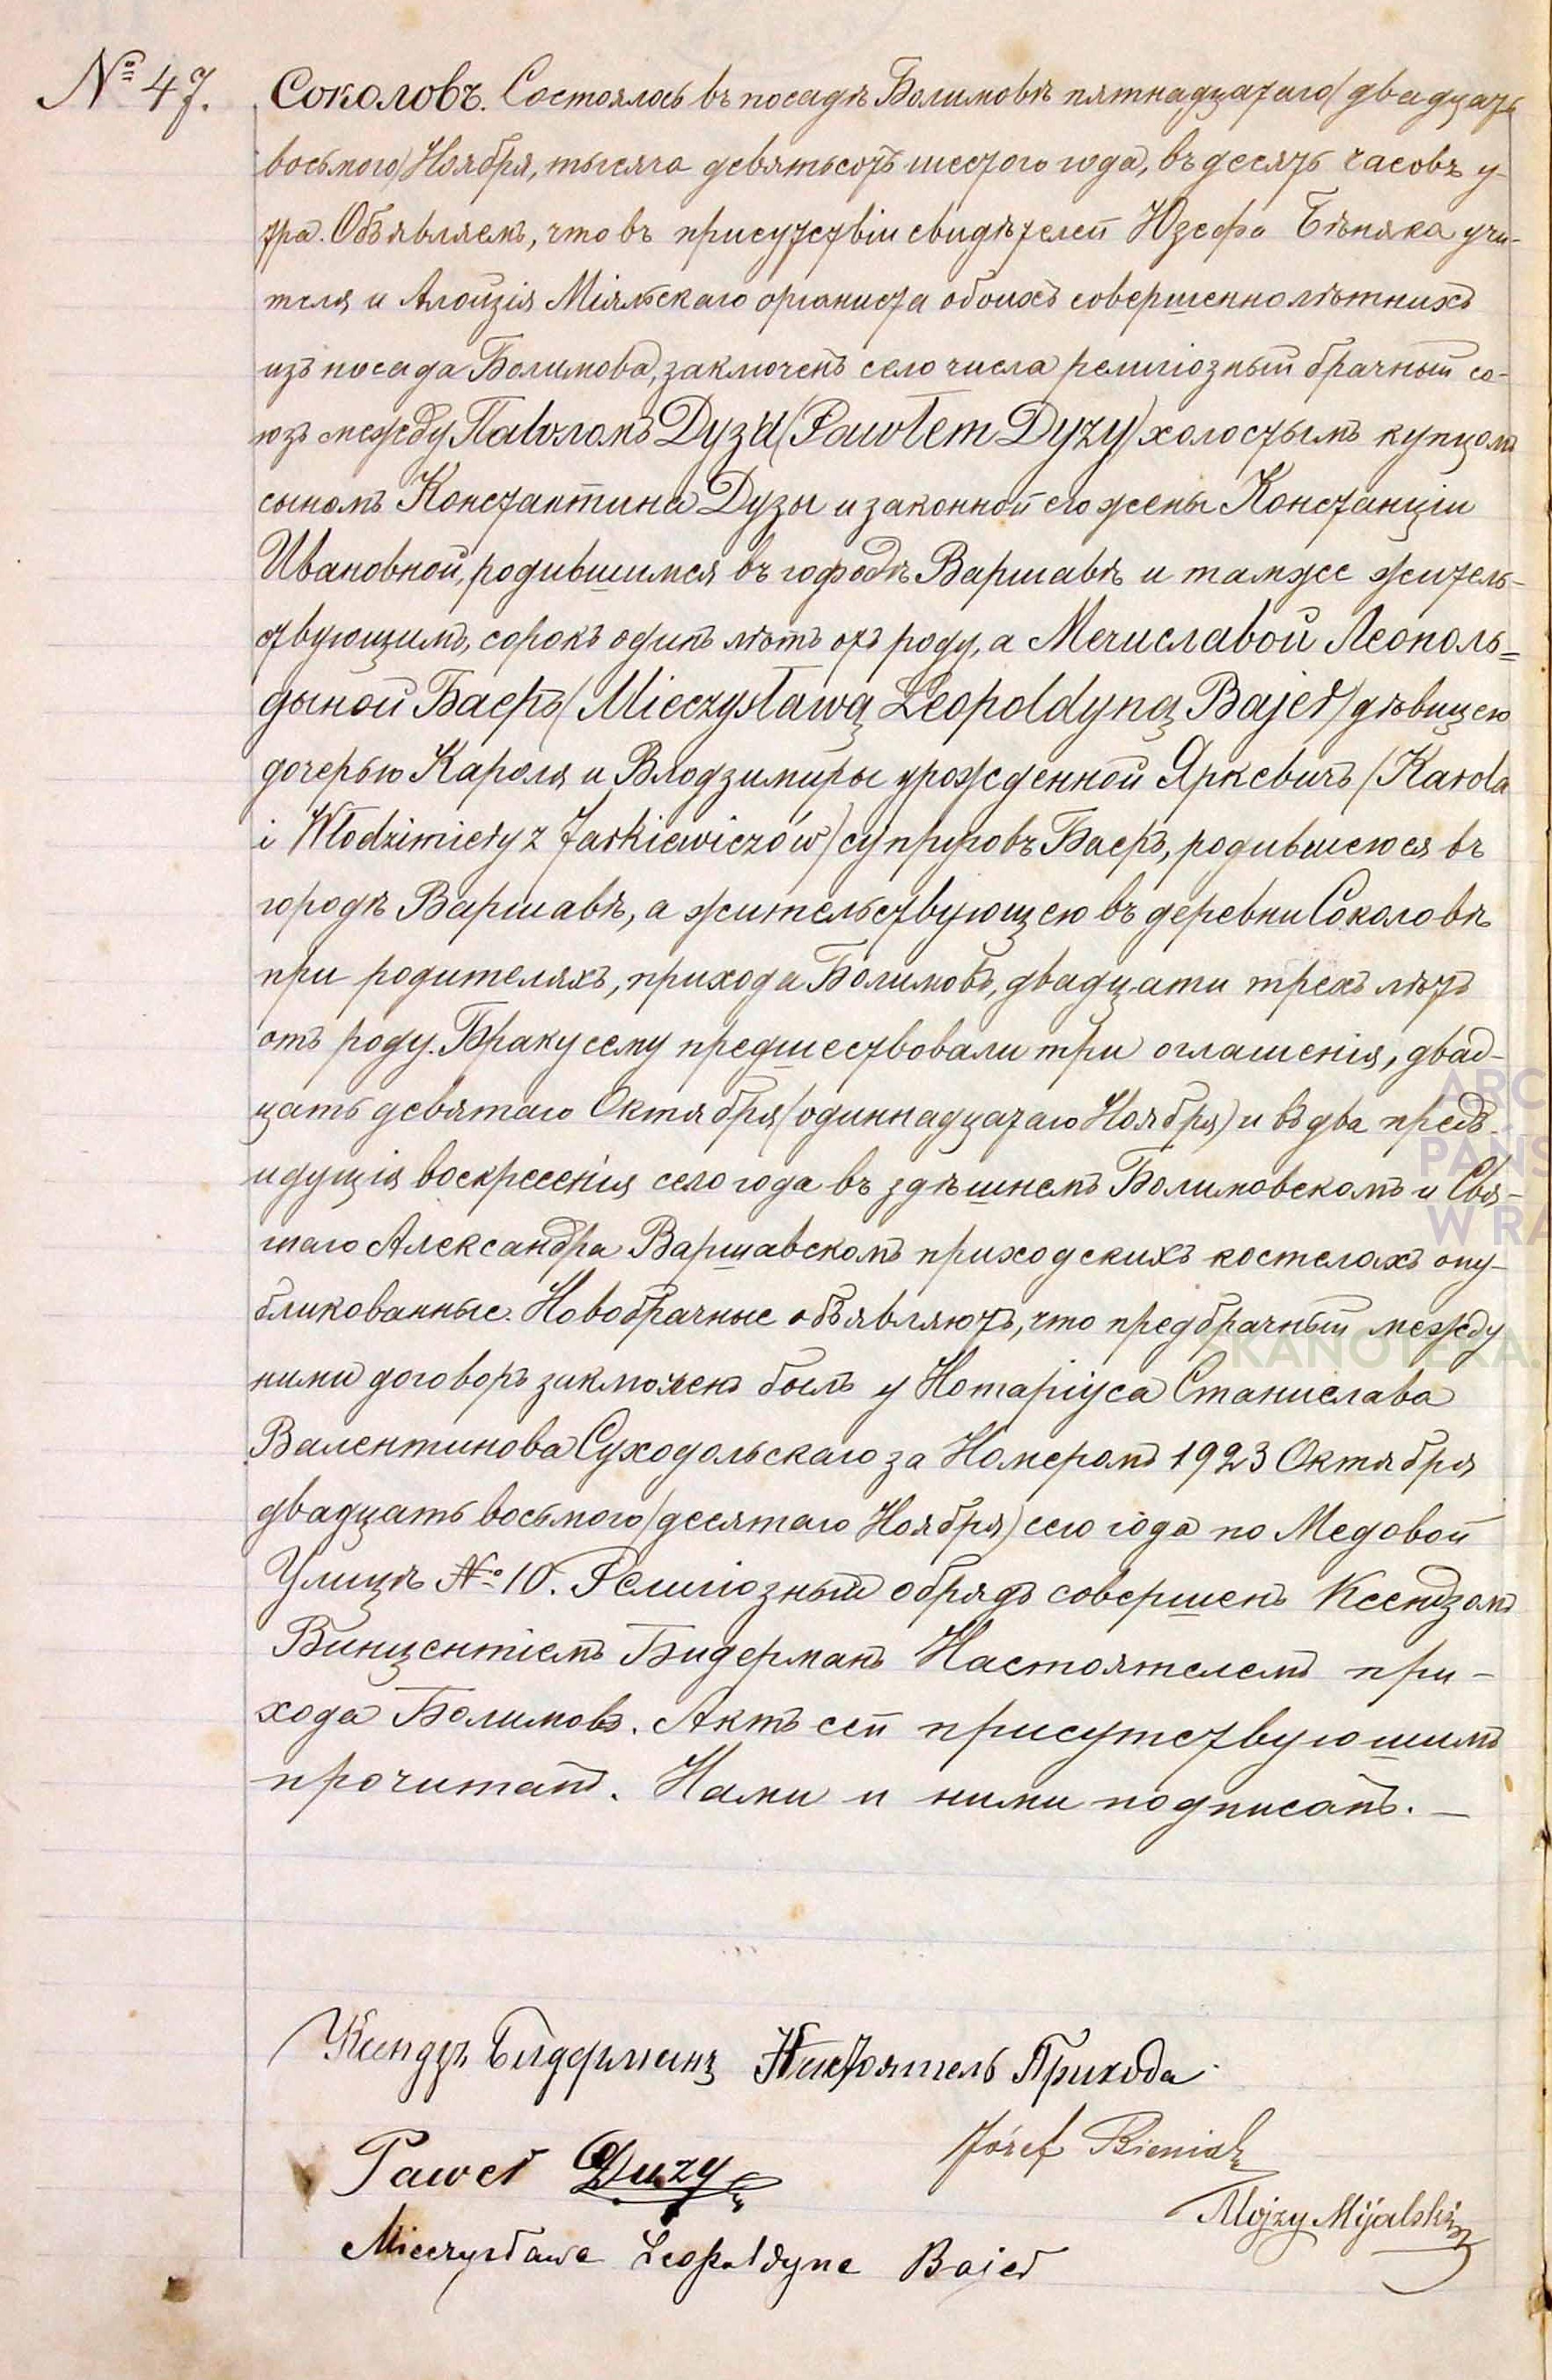 № 47. Соколовъ. Состоялось въ посадѣ Болимовѣ пятнадцатаго (двадцать
восьмого) Ноября, тысяча девятьсотъ шестого года, въ десять часовъ у-
тра. Объявляемъ, что въ присутствіи свидѣтелей Юзефа Бѣняка учи-
теля и Алойзія Міяльскаго органиста обоихъ совершеннолѣтнихъ
изъ посада Болимова, заключенъ сего числа религіозный брачный со-
юзъ между Павломъ Дузы (Pawłem Duzy) холостымъ купцомъ
сыномъ Константина Дузы и законной его жены Констанціи
Ивановной, родившимся въ городѣ Варшавѣ и тамже житель-
ствующимъ, сорокъ одинъ лѣтъ отъ роду, а Мечиславой Леополь=
дыной Баеръ (Mieczysławą Leopoldyną Bajer) дѣвицею
дочерью Кароля и Влодзимиры урожденной Яркевичъ (Karola
i Włodzimiery z Jarkiewiczów) супруговъ Баеръ, родившеюся въ
городѣ Варшавѣ, а жительствующею въ деревни Соколовѣ
при родителяхъ, прихода Болимовъ, двадцати трехъ лѣтъ
отъ роду. Браку сему предшествовали три оглашенія, двад-
цать девятаго Октября (одиннадцатаго Ноября) и въ два предъ-
идущія воскресенія сего года въ здѣшнемъ Болимовскомъ и Свя-
таго Александра Варшавскомъ приходскихъ костелахъ опу-
бликованные. Новобрачные объявляютъ, что предбрачный между
ними договоръ заключенъ былъ у Нотаріуса Станислава
Валентинова Суходольскаго за Номеромъ 1923 Октября
двадцать восьмого (десятаго Ноября) сего года по Медовой
Улицѣ № 10. Религіозный обрядъ совершенъ Ксендзомъ
Винцентіемъ Бидерманъ Настоятелемъ при-
хода Болимовъ. Актъ сей присутствующимъ
прочитанъ. Нами и ними подписанъ. —
Ксендзъ Бидерманъ Настоятель Прихода
Józef Bieniak
Paweł Duzy
Alojzy Mijalski
Mieczysława Leopoldyna Bajer
ARC
PAŃS
W RA
SKANOTEKA.